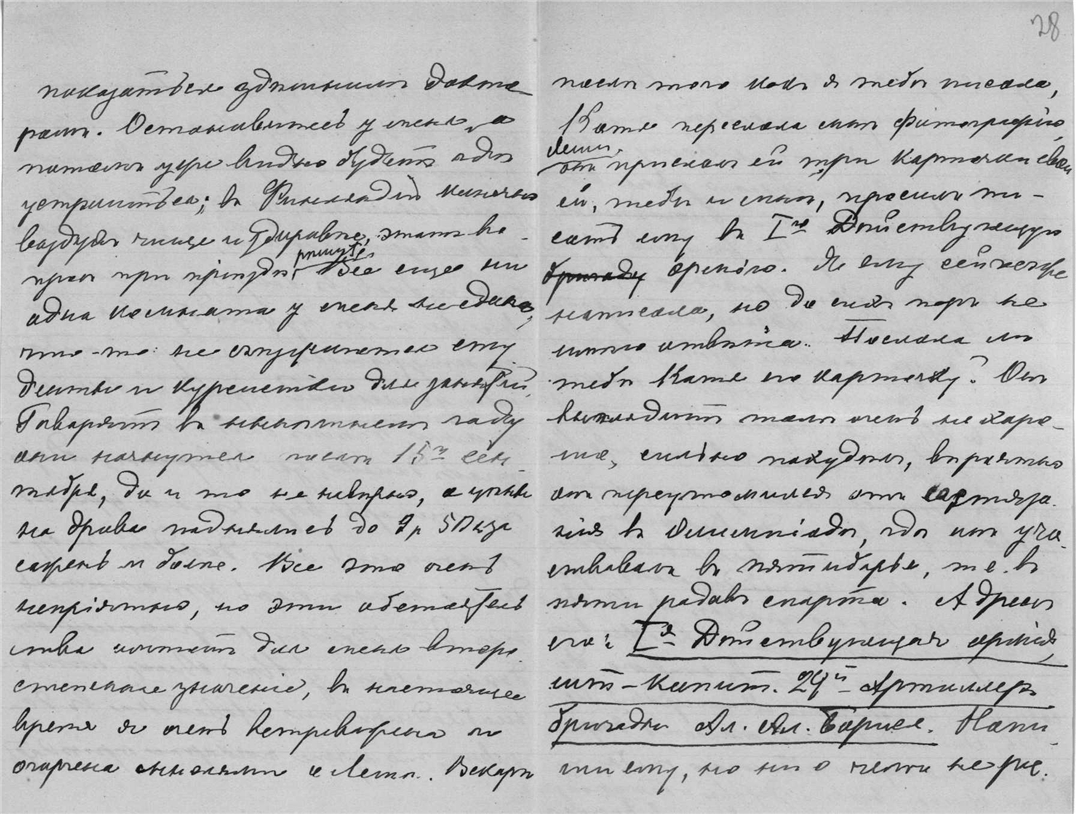 28
показаться здѣшнимъ докто
рамъ. Остановитесь у меня, а
потомъ уже видно будетъ гдѣ
устроиться; въ Финляндіи конечно
воздухъ чище и здоровѣе, этотъ во-
просъ при пріѣздѣ рѣшите. Все еще ни
одна комната у меня не сдана,
что-то не съѣзжаются сту
денты и курсистки для занятій.
Говорятъ въ нынѣшнемъ году
они начнутся послѣ 15го Сен
тября, да и то не навѣрно, а цѣны
на дрова поднялись до 9р 50к за
сажень и болѣе. Все это очень
непріятно, но эти обстоятель
ства имѣютъ для меня второ
степенное значеніе, въ настоящее
время я очень встревожена и
огорчена мыслями о Лелѣ. Вскорѣ
послѣ того какъ я тебѣ писала,
Катя переслала мнѣ фотографію
Лели,
онъ прислалъ ей три карточки сво
ей, тебѣ и мнѣ, просилъ пи-
сать ему въ Iую Дѣйствующую
бригаду армію. Я ему сейчасъ же
написала, но до сихъ поръ не
имѣю отвѣта. Послала ли
тебѣ Катя его карточку? Онъ
выглядитъ тамъ очень не хоро-
шо, сильно похудѣлъ, вѣроятно
онъ переутомился отъ состяза-
нія въ Олимпіадѣ, гдѣ онъ уча-
ствовалъ въ пятиборьѣ, т.е. въ
пяти родахъ спорта. Адресъ
его: Iя Дѣйствующая армія,
шт-капит. 29й Артиллер
бригады Ал. Ал.
Напи-
ши ему, но ни о чемъ не рас-